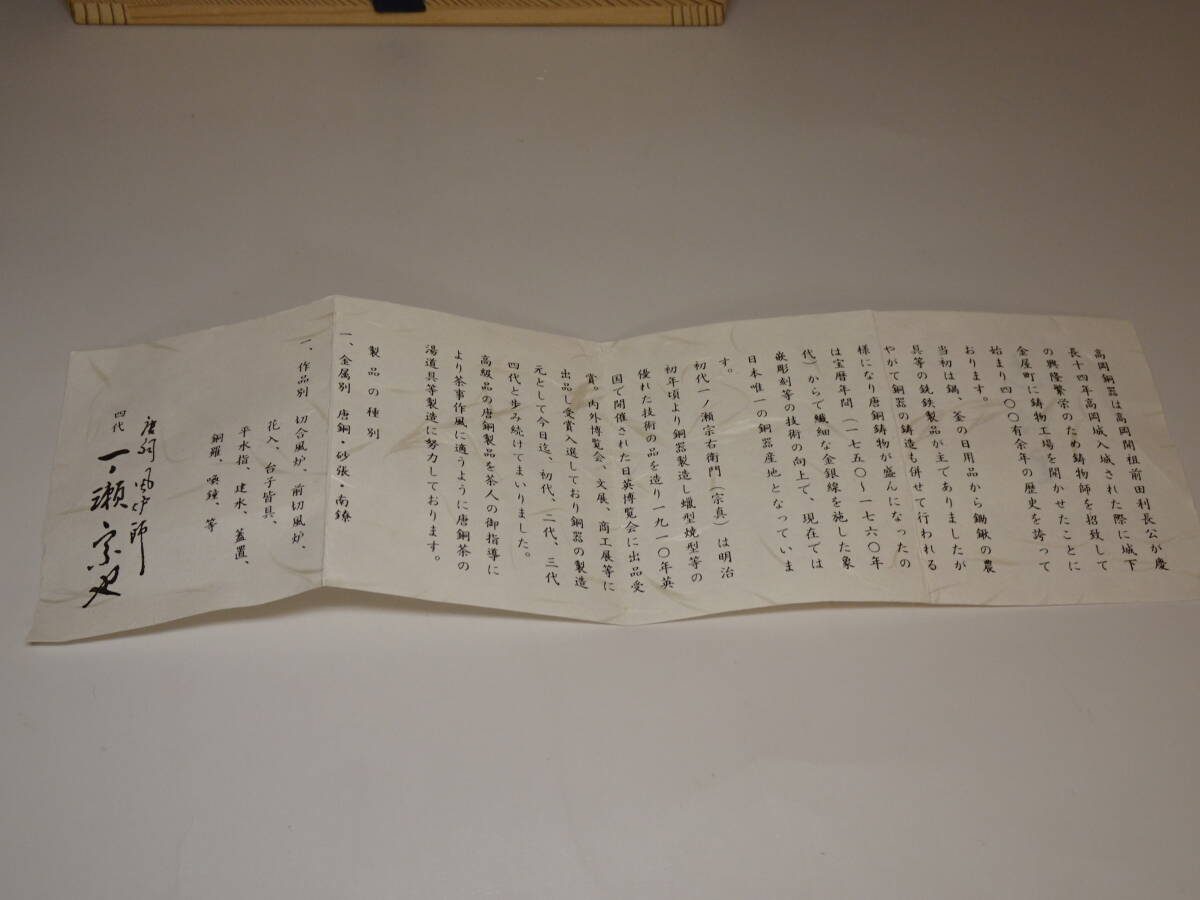 高岡銅器は高岡開祖前田利長公が慶
長十四年高岡城入城された際に城下
の興隆繁栄のため鋳物師を招致して
金屋町に鋳物工場を開かせたことに
始まり四〇〇有余年の歴史を誇って
おります。
当初は鍋、釜の日用品から鋤鍬の農
具等の銑鉄製品が主でありましたが
やがて銅器の鋳造も併せて行われる
様になり唐銅鋳物が盛んになったの
は宝暦年間（一七五〇～一七六〇年
代）からで繊細な金銀線を施した象
嵌彫刻等の技術の向上で、現在では
日本唯一の銅器産地となっていま
す。
初代一ノ瀬宗右衛門（宗真）は明治
初年頃より銅器製造し蝋型焼型等の
優れた技術の品を造り一九一〇年英
国で開催された日英博覧会に出品受
賞。内外博覧会、文展、商工展等に
出品し受賞入選しており銅器の製造
元として今日迄、初代、二代、三代
四代と歩み続けてまいりました。
高級品の唐銅製品を茶人の御指導に
より茶事作風に適うように唐銅茶の
湯道具等製造に努力しております。
製品の種別
一、金属別 唐銅・砂張・南鐐
一、作品別 切合風炉、前切風炉、
花入、台子皆具、
平水指、建水、蓋置、
銅羅、喚鐘、等
唐銅風炉師
四代 一ノ瀬宗也